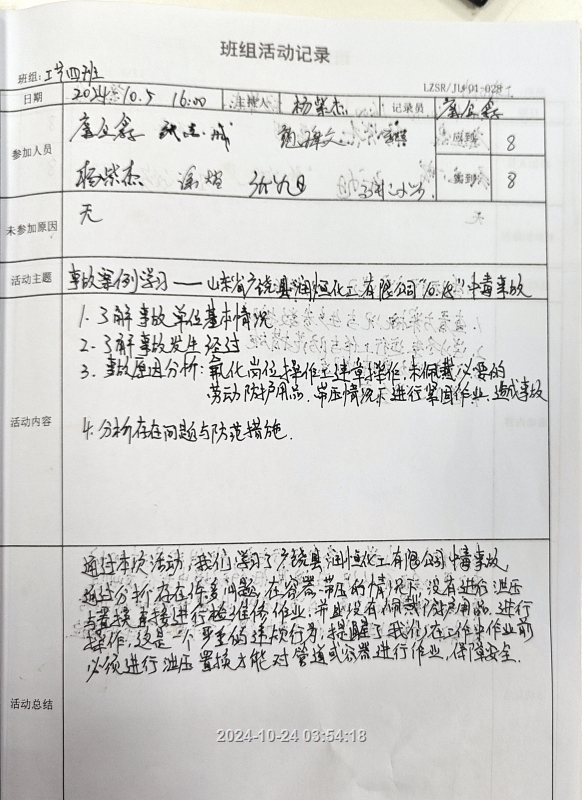 班组活动记录
班组: 工艺四班
LZSR/JL-01-028
日期 2024.10.5 16:00 主持人 杨紫杰 记录员
参加人员 应到 8
杨紫杰 实到 8
未参加原因 无
活动主题 事故案例学习——山东省广饶县润恒化工有限公司 中毒事故
1. 了解事故单位基本情况
2. 了解事故发生经过
3. 事故原因分析: 氧化岗位操作工违章操作,未佩戴必要的
劳动防护用品,带压情况下进行紧固作业,造成事故
活动内容
4. 分析存在问题与防范措施.
通过本次活动,我们学习了广饶县润恒化工有限公司中毒事故
通过分析存在许多问题,在容器带压的情况下,没有进行泄压
与置换直接进行检维修作业,并且没有佩戴防护用品,进行
操作,这是一个严重的违规行为,提醒了我们在工作中作业前
必须进行泄压置换才能对管道或容器进行作业,保障安全.
活动总结
2024-10-24 03:54:18